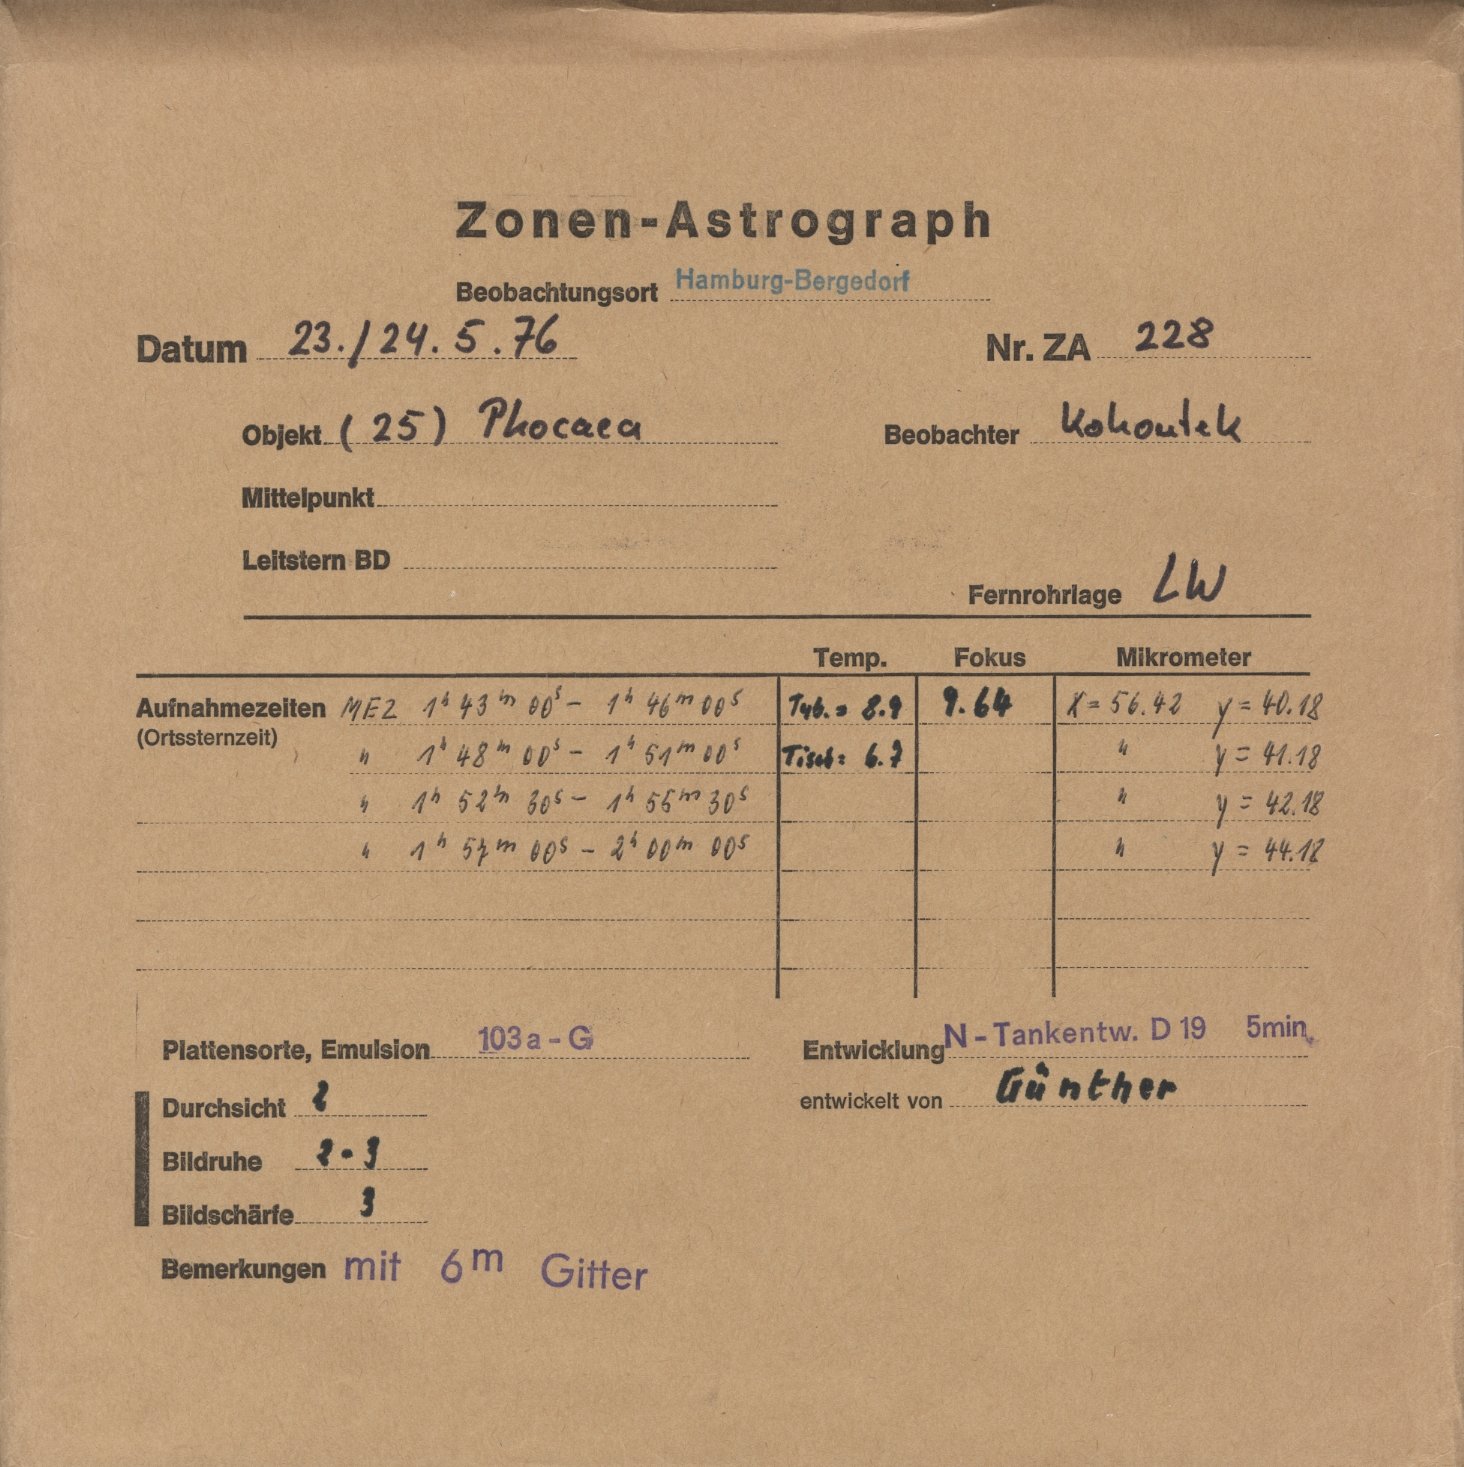 Zonen-Astrograph
Beobachtungsort Hamburg-Bergedorf
Datum 23./24. 5. 76 Nr. ZA 228
Objekt (25) Phocaea Beobachter Kohoutek
Mittelpunkt
Leitstern BD
Fernrohrlage LW
Temp. Fokus Mikrometer
Aufnahmezeiten MEZ 1h 43m 00s - 1h 46m 00s Tub. = 8.9 9.64 X = 56.42 y = 40.18
(Ortssternzeit) " 1h 48m 00s - 1h 51m 00s Tisch = 6.7 " y = 41.18
" 1h 52m 30s - 1h 55m 30s " y = 42.18
" 1h 57m 00s - 2h 00m 00s " y = 44.18
Plattensorte, Emulsion 103a-G Entwicklung N-Tankentw. D 19 5min.
Durchsicht 2 entwickelt von Günther
Bildruhe 2-3
Bildschärfe 3
Bemerkungen mit 6m Gitter